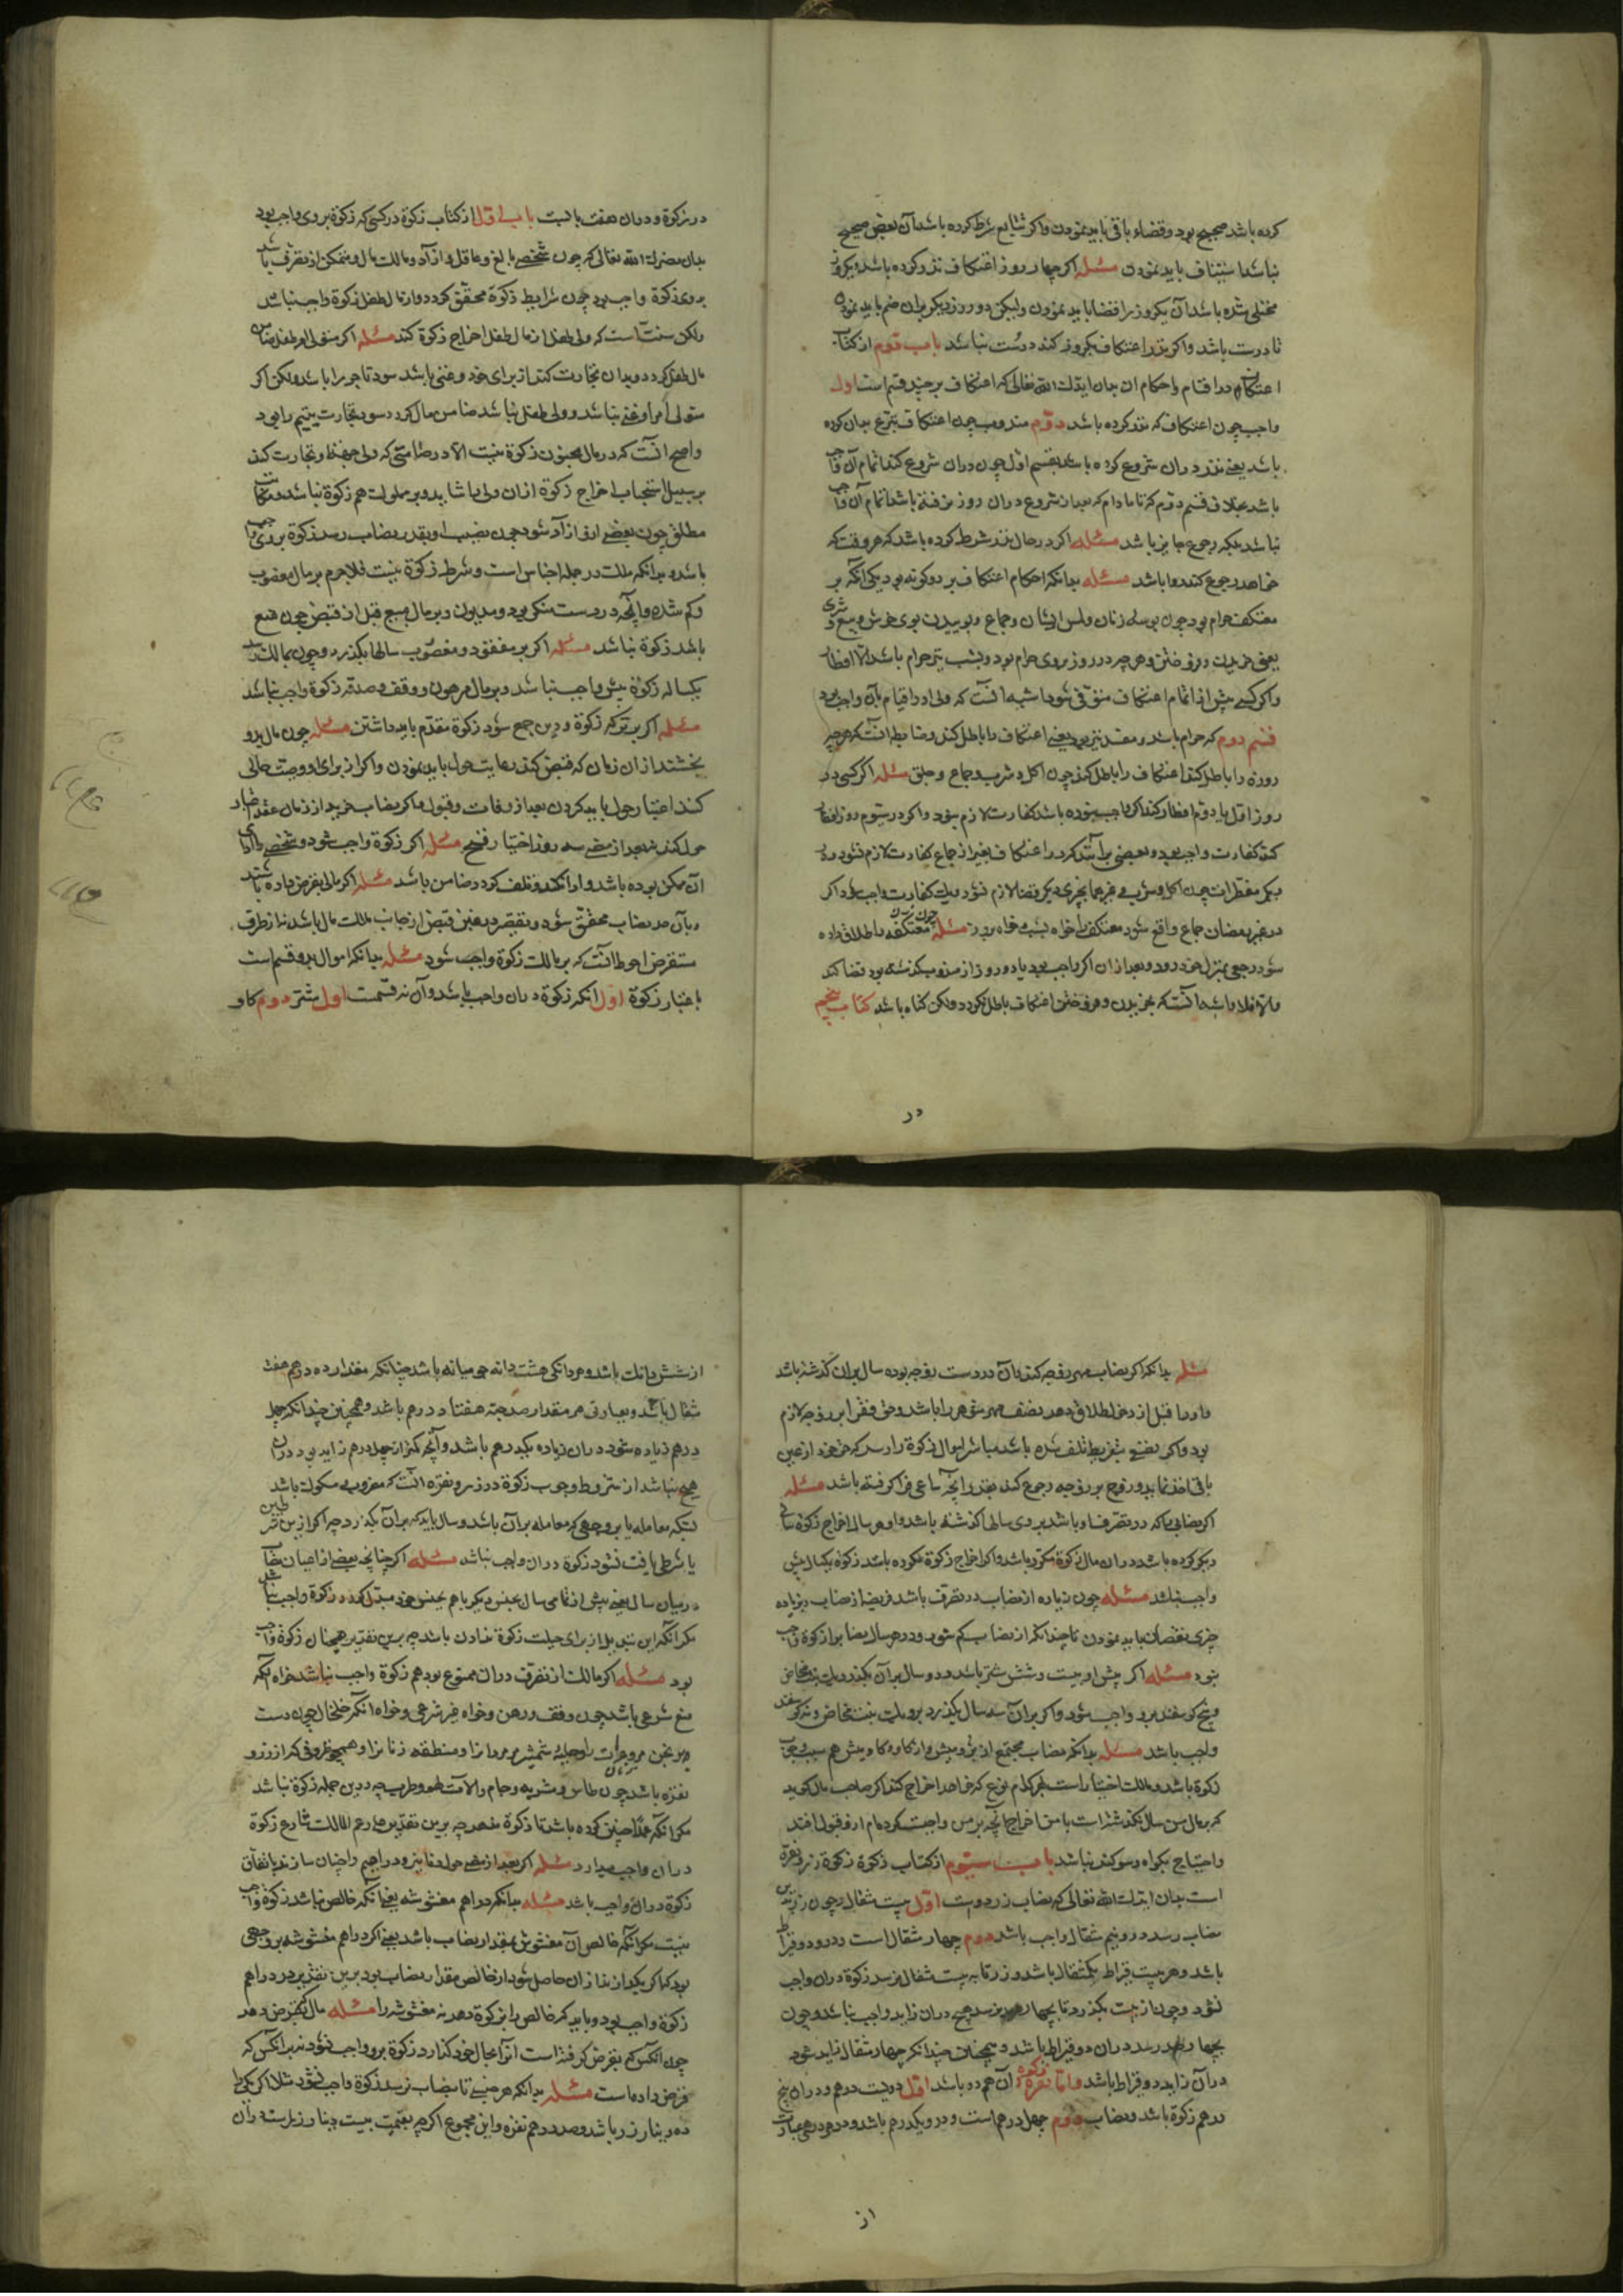 کرده باشد صحیح بود وقضاء باقی باید نمودن واکر تتابع شرط کرده باشد آن بعض صحیح
نباشد استیناف باید نمودن مسئله اکر چهار روز اعتکاف نذر کرده باشد ویکروز
مختل شده باشد آن یکروز را قضا باید نمودن ولیکن دو روز دیکر بران ضم باید نمودن
تا درست باشد واکر نذر اعتکاف یکروز کند درست نباشد باب دوم از کتاب
اعتکاف در اقسام واحکام ان بیان ایدک الله تعالی که اعتکاف بر چند قسم است اول
واجب چون اعتکاف که نذر کرده باشد دوم مندوب چون اعتکاف تبرع بدان کرده
باشد یعنی نذر دران شروع کرده باشد بقسم اول چون دران شروع کند اتمام آن واجب
باشد بخلاف قسم دوم که تا مادام که بعد از شروع دران روز نرفته باشد اتمام آن واجب
نباشد بلکه رجوع جایز باشد مسئله اکر در حال نذر شرط کرده باشد که هر وقت که
خواهد رجوع کند روا باشد مسئله بدانکه احکام اعتکاف بر دو کونه بود یکی آنکه بر
معتکف حرام بود چون بوسه زنان ولمس ایشان وجماع وبوییدن بوی خوش وبیع وشری
یعنی خریدن وفروختن وهرچه در روز بروی حرام بود وبشب نیز حرام باشد الا افطار
واکر کسی پیش از اتمام اعتکاف متوفی شود اشبه انست که ولی او را قیام بآن واجب بود
قسم دوم که حرام باشد ومفسد نیز بود یعنی اعتکاف را باطل کند وضابطه انست که هرچه
روزه را باطل کند اعتکاف را باطل کند چون اکل وشرب وجماع وجلق مسئله اکر کسی در
روز اول یا دوم افطار کند اکر واجب نبوده باشد کفارت لازم نبود واکر در سیوم روز افطار
کند کفارت واجب بود وبعضی برآنند که در اعتکاف بغیر از جماع کفارت لازم نشود و به
دیکر مفطرات چون اکل وشرب وغیرهما بجزی دیکر وقضا لازم نشود ویک کفارت واجب بود اکر
در غیر رمضان جماع واقع شود معتکف را خواه بشب وخواه بروز مسئله چون زن معتکفه را طلاق داده
شود رجعی بمنزل خود رود وبعد از ان اکر واجب بود یا دو روز از مندوب کذشته بود قضا کند
والا فلا واشبه انست که بخریدن وفروختن اعتکاف باطل نکردد ولکن کناه باشد کتاب پنجم
در
در زکوة ودران هفت بابست باب اول از کتاب زکوة در کسی که زکوة بر وی واجب بود
بدان نصرک الله تعالی که چون شخصی بالغ وعاقل وازاد ومالک مال ومتمکن از تصرف باشد
بر وی زکوة واجب بود چون شرایط زکوة محقق کردد واز مال طفل زکوة واجب نباشد
ولکن سنت است که ولی طفل از مال طفل اخراج زکوة کند مسئله اکر متولی امر طفل ضامن
مال طفل کردد وبدان تجارت کند از برای خود وغنی باشد سود تاجر را باشد ولکن اکر
متولی امر او غنی نباشد وولی طفل نباشد ضامن مال کردد سود تجارت یتیم را بود
واصح انست که در مال مجنون زکوة نیست الا در صامتی که ولی جهت حفظ وتجارت کند
بر سبیل استحباب اخراج زکوة ازان ولی را شاید وبر مملوک هم زکوة نباشد ومکاتب
مطلق چون بعضی ازو ازاد شود چون نصیب او بقدر نصاب رسد زکوة بر وی واجب
باشد وبدانکه ملک در جمله اجناس است وشرط زکوة نیست فلاجرم بر مال مغصوب
وکم شده وانچه در دست منکر بود ومدیون وبر مال مبیع قبل از قبض چون منع
باشد زکوة نباشد مسئله اکر بر مفقود ومغصوب سالها بکذرد وچون بمالک رسد
یکساله زکوة بیش واجب نباشد وبر مال مرهون ووقف وصدقه زکوة واجب نباشد
مسئله اکر بر ترکه زکوة ودین جمع شود زکوة مقدم باید داشتن مسئله چون مال بدو
بخشند از ان زمان که قبض کند رعایت حول باید نمودن واکر از برای او وصیت مالی
کنند اعتبار حول باید کردن بعد از وفات وقبول واکر نصاب خرید از زمان عقد اعتبار
حول کند نه بعد از مضی سه روز اختیار فسخ مسئله اکر زکوة واجب شود وشخصی را ادای
آن ممکن بوده باشد وادا نکند وتلف کردد ضامن باشد مسئله اکر مالی بقرض داده باشد
وبآن قدر نصاب محقق شود وتقصیر در عین قبض از جانب مالک مال باشد نه از طرف
مستقرض احوط انست که بر مالک زکوة واجب شود مسئله بدانکه اموال بر دو قسم است
باعتبار زکوة اول انکه زکوة دران واجب باشد وآن نه قسمت اول شتر دوم کاو
مسئله بدانکه اکر نصاب مهر زوجه کند وآن در دست زوجه بوده سال بران کذشته باشد
واو را قبل از دخول طلاق دهد نصف مهر شوهر را باشد وحق فقرا بر زوجه لازم
بود واکر نصفی بتفریط تلف شده باشد مباشر اموال زکوة را رسد که حق خود از عین
باقی اخذ نماید وزوج بر زوجه رجوع کند بقدر انچه ساعی فرا کرفته باشد مسئله
اکر نصابی را که در تصرف او باشد بروی سالها کذشته باشد واو هر سال اخراج زکوة سالی
دیکر کرده باشد دران مال زکوة مکرر باشد واکر اخراج زکوة نکرده باشد زکوة یکسال بیش
واجب نباشد مسئله چون زیاده از نصاب در تصرف باشد فریضه از نصاب وبزیاده
جبر نقصان باید نمودن تا چندانکه از نصاب کم شود ودر هر سال نصابرا زکوة واجب
بود مسئله اکر پیش او بیست وشش شتر باشد ودو سال بران بکذرد یک بنت مخاض
وپنج کوسفند برو واجب شود واکر بران سه سال بکذرد برو یک بنت مخاض ونه کوسفند
واجب باشد مسئله بدانکه نصاب مجتمع از بز ومیش واز کاو وکاومیش هم سبب وجوب
زکوة باشد ومالک اختیار است بهر کدام نوع که خواهد اخراج کند اکر صاحب مال کوید
که بر مال من سال نکذشته است یا من اخراج انچه بر من واجبست کرده ام ازو قبول افتد
واحتیاج بکواه وسوکند نباشد باب سیوم از کتاب زکوة زکوة زر ونقره
است بدان ایدک الله تعالی که نصاب زر دوست اول بیست مثقال وچون زر بدین
نصاب رسد درو نیم مثقال واجب باشد دوم چهار مثقال است ودرو دو قیراط
باشد وهر بیست قیراط یکمثقال باشد وزر تا به بیست مثقال نرسد زکوة دران واجب
نشود وچون از بیست بکذرد تا بچهار نرسد هیچ دران زاید واجب نباشد وچون
بچهار رسد دران دو قیراط باشد وهمچنین چندانکه چهار مثقال زاید شود
دران زاید دو قیراط باشد واما زکوة نقره وآن هم دو باشد اول دویست درهم ودران پنج
درهم زکوة باشد ونصاب دوم چهل درهم است ودرو یکدرهم باشد ودرهم درهمی عبارت
از
از شش دانک باشد وهر دانکی هشت دانه جو میانه باشد چنانکه مقدار ده درهم هفت
مثقال باشد وبعبارتی هر مقدار صد جبه هفتاد درهم باشد وهمچنین چندانکه چهل
درهم زیاده شود دران زیاده یکدرهم باشد وآنچه کمتر از چهل درهم زاید بود دران
هیچ نباشد از شروط وجوب زکوة در زر ونقره انست که مضروب مسکوک باشد
بسکه معامله یا بر وجهی که معامله بران باشد وسال باید که بران بکذرد چه اکر ازین شرایط
یا شرطی یافت نشود زکوة دران واجب نباشد مسئله اکر چنانچه بعضی از اعیان نصاب
در میان سال یعنی پیش از تمامی سال بجنس دیکر یا هم بجنس خود مبدل کردد زکوة واجب نباشد
مکر انکه این تبدیل از برای حیلت زکوة نادادن باشد چه برین تقدیر همچنان زکوة واجب
بود مسئله اکر مالک از تصرف دران ممنوع بود هم زکوة واجب نباشد خواه انکه
منع شرعی باشد چون وقف ورهن وخواه غیر شرعی وخواه انکه خلخال چون دست
ورنجن مر وحلیه شمشیر مر مردانرا ومنطقه زنانرا وهمچو ظروفی که از زر و
نقره باشد چون طاس ومشربه وجام وآلات لهو وطرب چه درین جمله زکوة نباشد
مکر انکه عمدا چنین کرده باشد تا زکوة ندهد چه برین تقدیر علی رغم المالک شارع زکوة
دران واجب میدارد مسئله اکر بعد از مضی حول دنانیر ودراهم را چنان سازند باتفاق
زکوة دران واجب باشد مسئله بدانکه دراهم مغشوشه یعنی انکه خالص نباشد زکوة واجب
نیست مکر انکه خالص آن مغشوش بمقدار نصاب باشد یعنی اکر دراهم مغشوشه بر وجهی
بود که اکر بکدازند ازان حاصل شود از خالص مقدار نصاب بود برین تقدیر در دراهم
زکوة واجب بود وباید که خالص را بزکوة دهد نه مغشوشه را مسئله مال که بقرض دهد
چون انکس که بقرض کرفته است انرا بحال خود کذارد زکوة برو واجب شود نه بر انکس که
قرض داده است مسئله بدانکه هر جنسی تا بنصاب نرسد زکوة واجب نشود مثلا اکر یکی را
ده دینار زر باشد وصد درهم نقره واین مجموع اکرچه بقیمت بیست دینار زر است دران